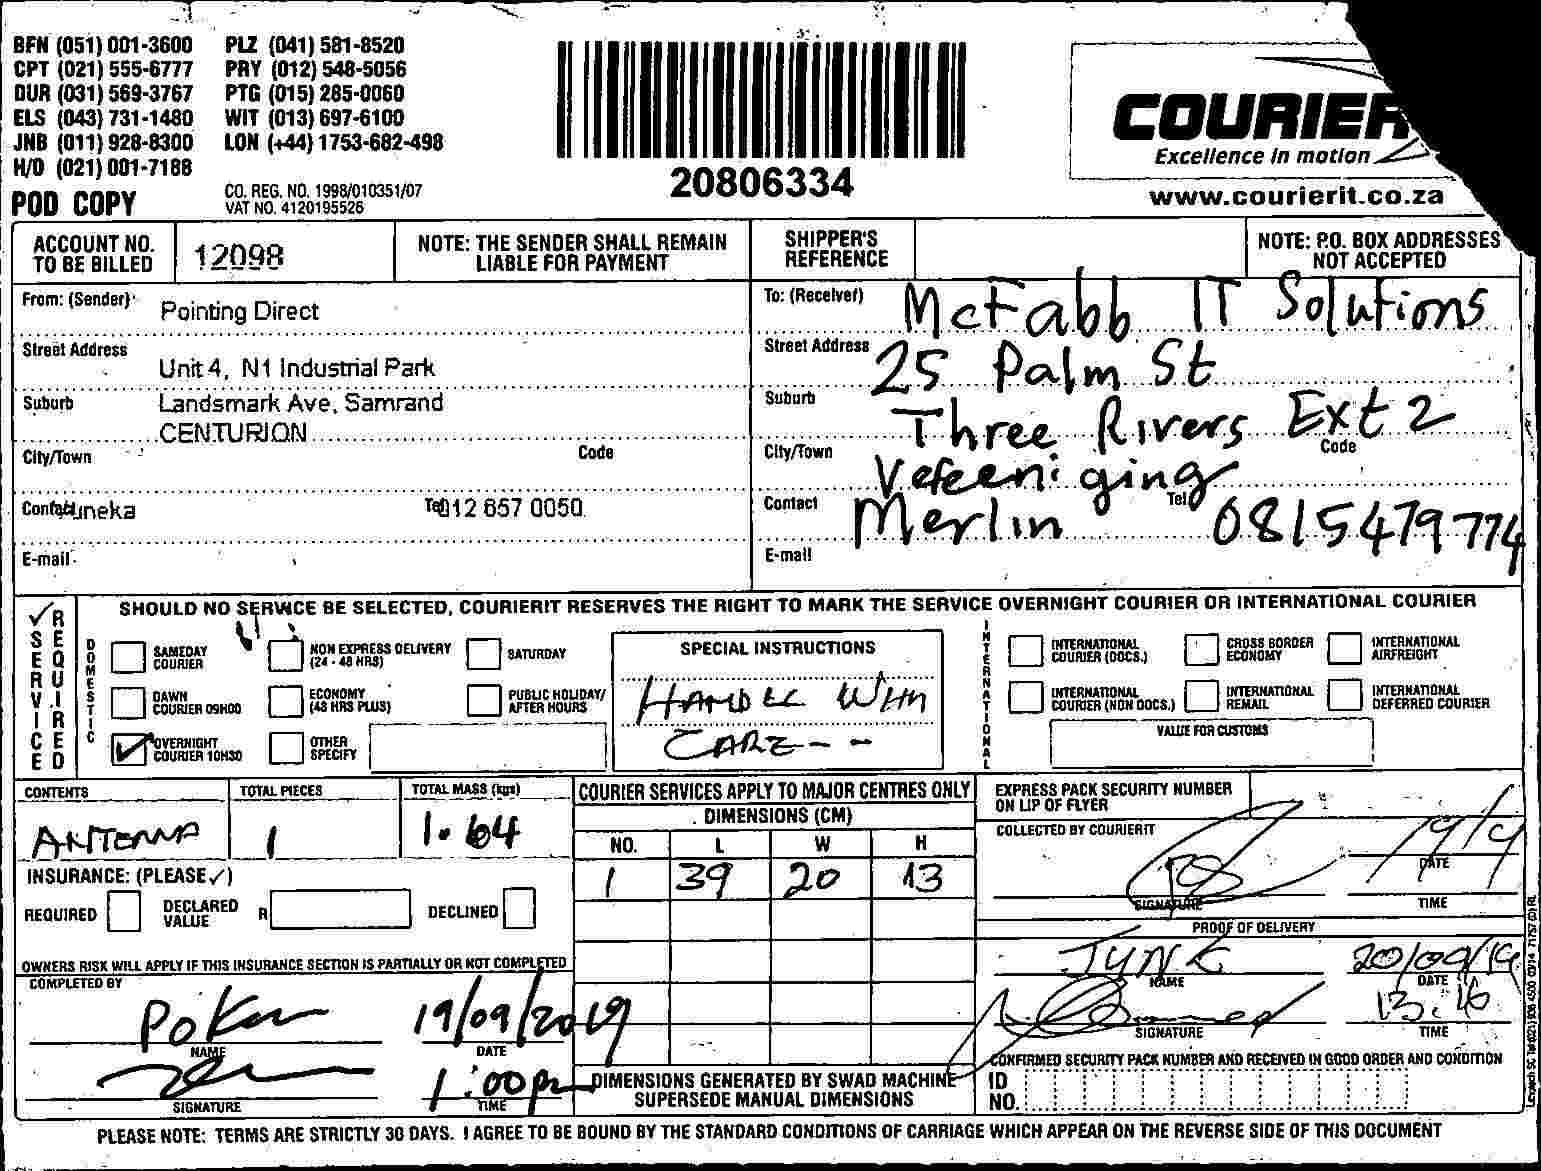 BFN (051) 001-3600 PLZ (041) 581-8520
CPT (021) 555-6777 PRY (012) 548-5056
DUR (031) 569-3767 PTG (015) 285-0060
ELS (043) 731-1480 WIT (013) 697-6100
JNB (011) 928-8300 LON (+44) 1753-682-498
H/O (021) 001-7188
POD COPY
CO. REG. NO. 1998/010351/07
VAT NO. 4120195526
20806334
COURIER
Excellence in motion
www.courierit.co.za
ACCOUNT NO. TO BE BILLED 12098
NOTE: THE SENDER SHALL REMAIN LIABLE FOR PAYMENT
SHIPPER'S REFERENCE
NOTE: P.O. BOX ADDRESSES NOT ACCEPTED
From: (Sender) Pointing Direct
Street Address Unit 4, N1 Industrial Park
Suburb Landsmark Ave, Samrand
CENTURION
City/Town Code
Contact Tel 012 657 0050
E-mail
To: (Receiver) McFabb IT Solutions
Street Address 25 Palm St
Suburb Three Rivers Ext 2
City/Town Vereeniging Code
Contact Merlin Tel 0815479774
E-mail
SERVICE REQUIRED
SHOULD NO SERVICE BE SELECTED, COURIERIT RESERVES THE RIGHT TO MARK THE SERVICE OVERNIGHT COURIER OR INTERNATIONAL COURIER
DOMESTIC
SAMEDAY COURIER
NON EXPRESS DELIVERY (24 - 48 HRS)
SATURDAY
DAWN COURIER 09H00
ECONOMY (48 HRS PLUS)
PUBLIC HOLIDAY/ AFTER HOURS
OVERNIGHT COURIER 10H30
OTHER SPECIFY
SPECIAL INSTRUCTIONS
HANDLE WITH
CARE--
INTERNATIONAL
INTERNATIONAL COURIER (DOCS.)
CROSS BORDER ECONOMY
INTERNATIONAL AIRFREIGHT
INTERNATIONAL COURIER (NON DOCS.)
INTERNATIONAL REMAIL
INTERNATIONAL DEFERRED COURIER
VALUE FOR CUSTOMS
CONTENTS ANTENNA
TOTAL PIECES 1
TOTAL MASS (kgs) 1.64
INSURANCE: (PLEASE ✓)
REQUIRED
DECLARED VALUE R
DECLINED
OWNERS RISK WILL APPLY IF THIS INSURANCE SECTION IS PARTIALLY OR NOT COMPLETED
COMPLETED BY
19/09/2019
NAME DATE
1:00pm
SIGNATURE TIME
COURIER SERVICES APPLY TO MAJOR CENTRES ONLY
DIMENSIONS (CM)
NO. L W H
1 39 20 13
DIMENSIONS GENERATED BY SWAD MACHINE SUPERSEDE MANUAL DIMENSIONS
EXPRESS PACK SECURITY NUMBER ON LIP OF FLYER
COLLECTED BY COURIERIT
19/9
DATE
SIGNATURE TIME
PROOF OF DELIVERY
20/09/19
NAME DATE
13:16
SIGNATURE TIME
CONFIRMED SECURITY PACK NUMBER AND RECEIVED IN GOOD ORDER AND CONDITION
ID NO.
PLEASE NOTE: TERMS ARE STRICTLY 30 DAYS. I AGREE TO BE BOUND BY THE STANDARD CONDITIONS OF CARRIAGE WHICH APPEAR ON THE REVERSE SIDE OF THIS DOCUMENT